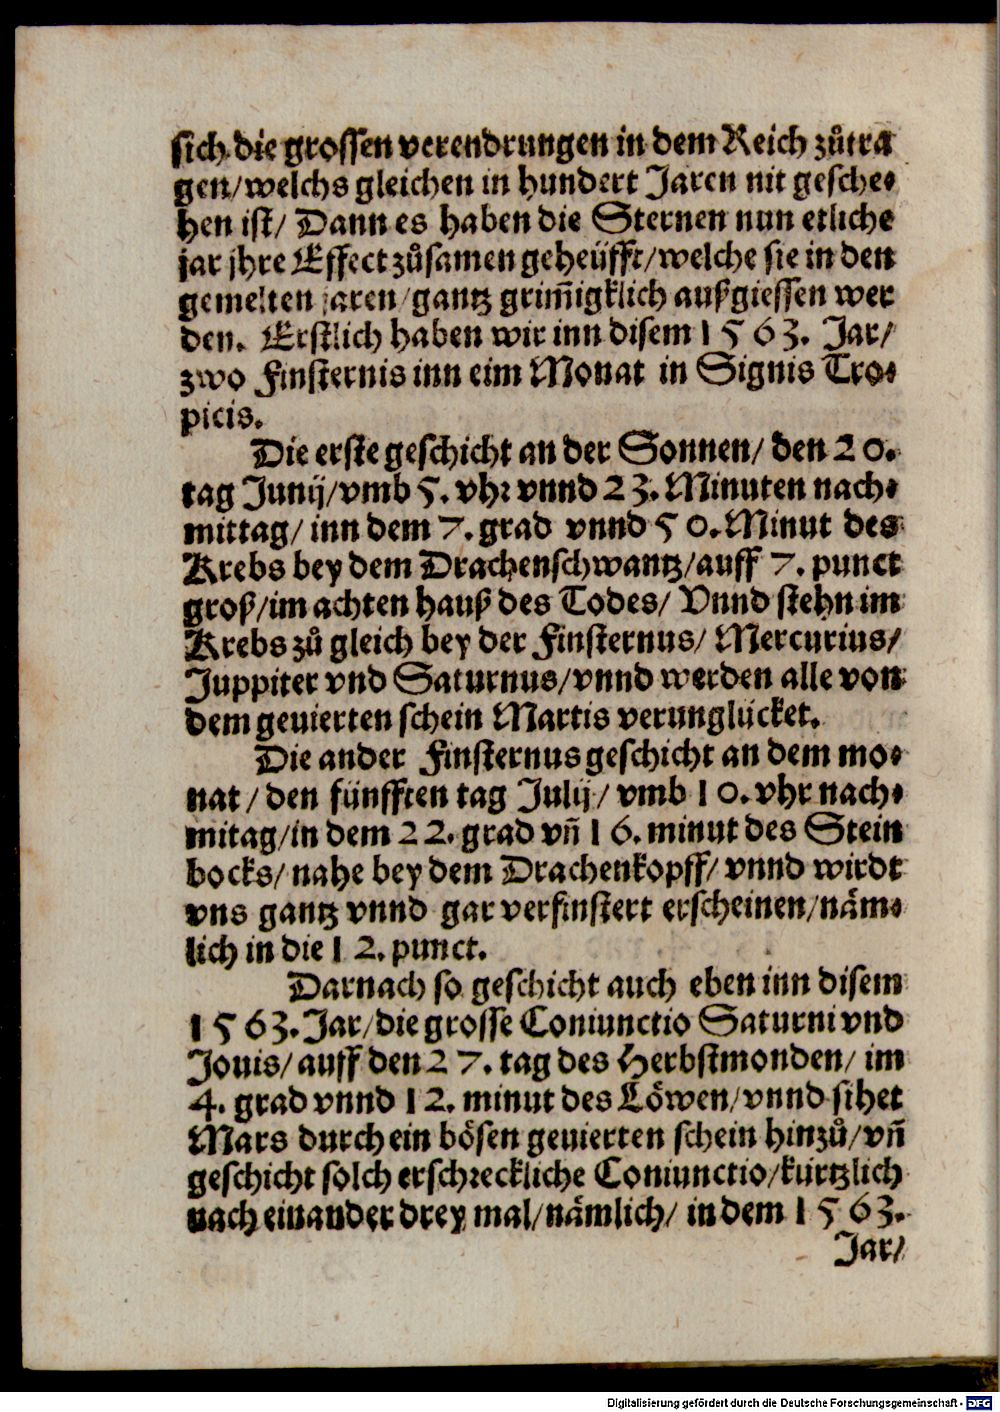 sich die grossen verendrungen in dem Reich zůtra
gen/welchs gleichen in hundert Jaren nit gesche⸗
hen ist/ Dann es haben die Sternen nun etliche
jar jhre Effect zůsamen geheüfft/welche sie in den
gemelten jaren/gantz grim̃igklich außgiessen wer
den. Erstlich haben wir inn disem 1563. Jar/
zwo Finsternis inn eim Monat in Signis Tro⸗
picis.
Die erste geschicht an der Sonnen/ den 20.
tag Junij/vmb 5. vhr vnnd 23. Minuten nach⸗
mittag/ inn dem 7. grad vnnd 50. Minut des
Krebs bey dem Drachenschwantz/auff 7. punct
groß/im achten hauß des Todes/ Vnnd stehn im
Krebs zů gleich bey der Finsternus/ Mercurius/
Juppiter vnd Saturnus/vnnd werden alle von
dem geuierten schein Martis verunglücket.
Die ander Finsternus geschicht an dem mo⸗
nat/ den fünfften tag Julij/ vmb 10. vhr nach⸗
mitag/in dem 22. grad vñ 16. minut des Stein
bocks/ nahe bey dem Drachenkopff/ vnnd wirdt
vns gantz vnnd gar verfinstert erscheinen/näm⸗
lich in die 12. punct.
Darnach so geschicht auch eben inn disem
1563. Jar/die grosse Coniunctio Saturni vnd
Jouis/ auff den 27. tag des Herbstmonden/ im
4. grad vnnd 12. minut des Löwen/vnnd sihet
Mars durch ein bösen geuierten schein hinzů/vñ
geschicht solch erschreckliche Coniunctio/kürtzlich
nach einander drey mal/nämlich/ in dem 1563.
Jar/
Digitalisierung gefördert durch die Deutsche Forschungsgemeinschaft - DFG